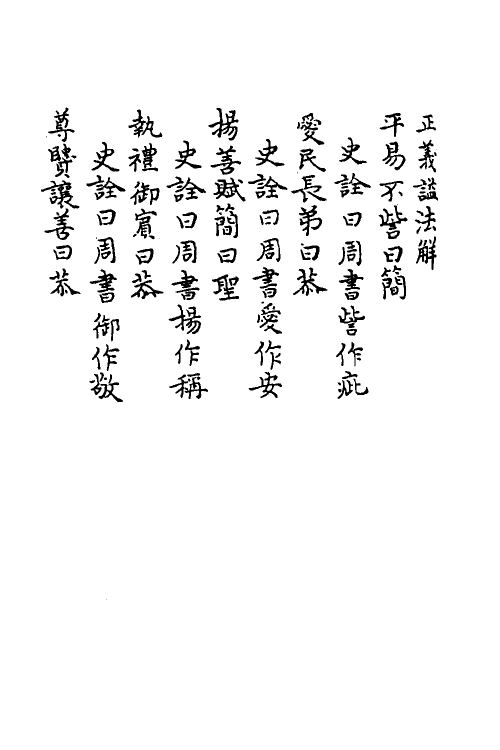 正義謚法解
平易不訾曰簡
史詮曰周書訾作疵
愛民長弟曰恭
史詮曰周書愛作安
揚善賦簡曰聖
史詮曰周書揚作稱
執禮御賓曰恭
史詮曰周書御作敬
尊賢讓善曰恭